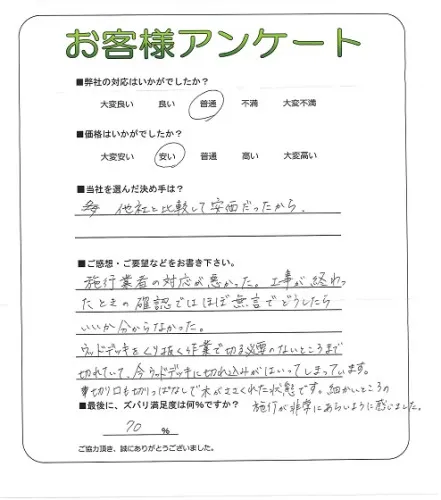 お客様アンケート
■弊社の対応はいかがでしたか？
大変良い 良い 普通 不満 大変不満
■価格はいかがでしたか？
大変安い 安い 普通 高い 大変高い
■当社を選んだ決め手は？
他社と比較して安価だったから。
■ご感想・ご要望などをお書き下さい。
施行業者の対応が悪かった。工事が終わっ
たときの確認ではほぼ無言でどうしたら
いいか分からなかった。
ウッドデッキをくり抜く作業で切る必要のないところまで
切れていて、今ウッドデッキに切れ込みがはいってしまっています。
切り口も切りっぱなしで木がささくれた状態です。細かいところの
施行が非常にあらいように感じました。
■最後に、ズバリ満足度は何％ですか？
70 %
ご協力頂き、誠にありがとうございました。